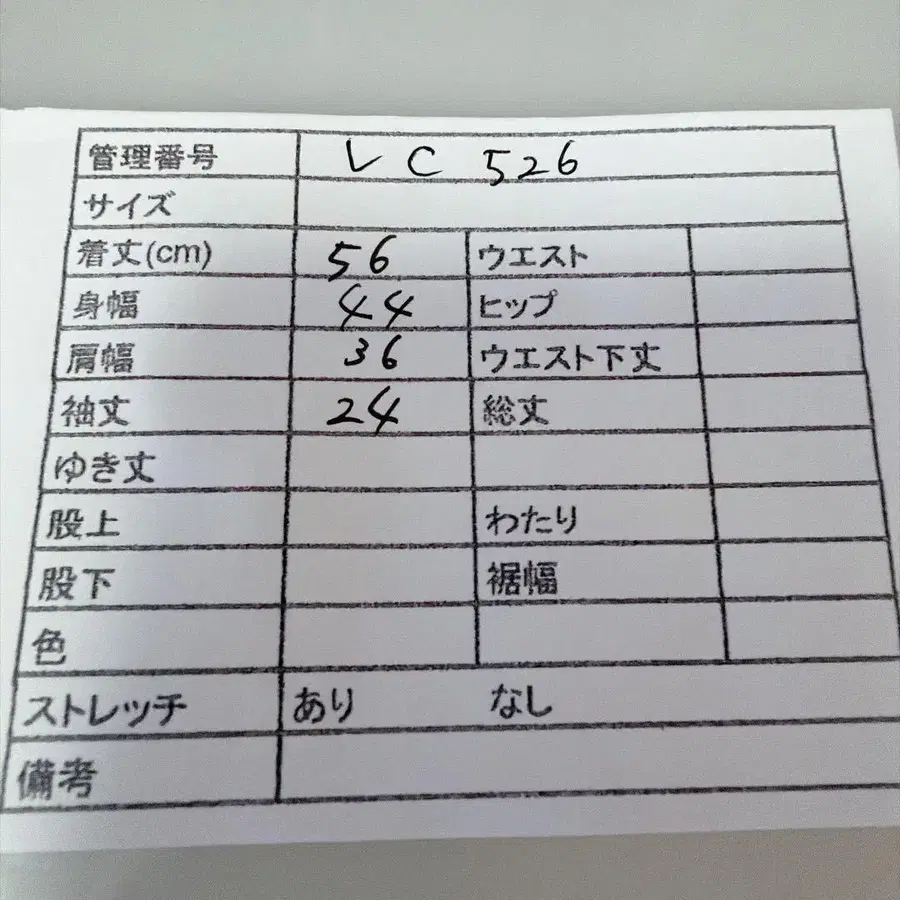 管理番号 レC 526
サイズ
着丈(cm) 56 ウエスト
身幅 44 ヒップ
肩幅 36 ウエスト下丈
袖丈 24 総丈
ゆき丈
股上 わたり
股下 裾幅
色
ストレッチ あり なし
備考